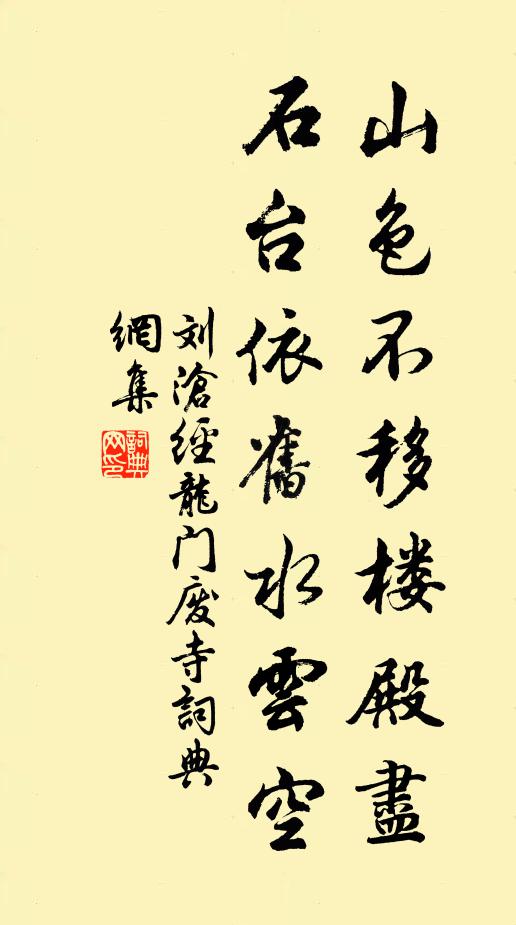 山色不移楼殿盡
石台依舊水雲空
刘滄經龍门废寺詞典
網集
詞典
网印